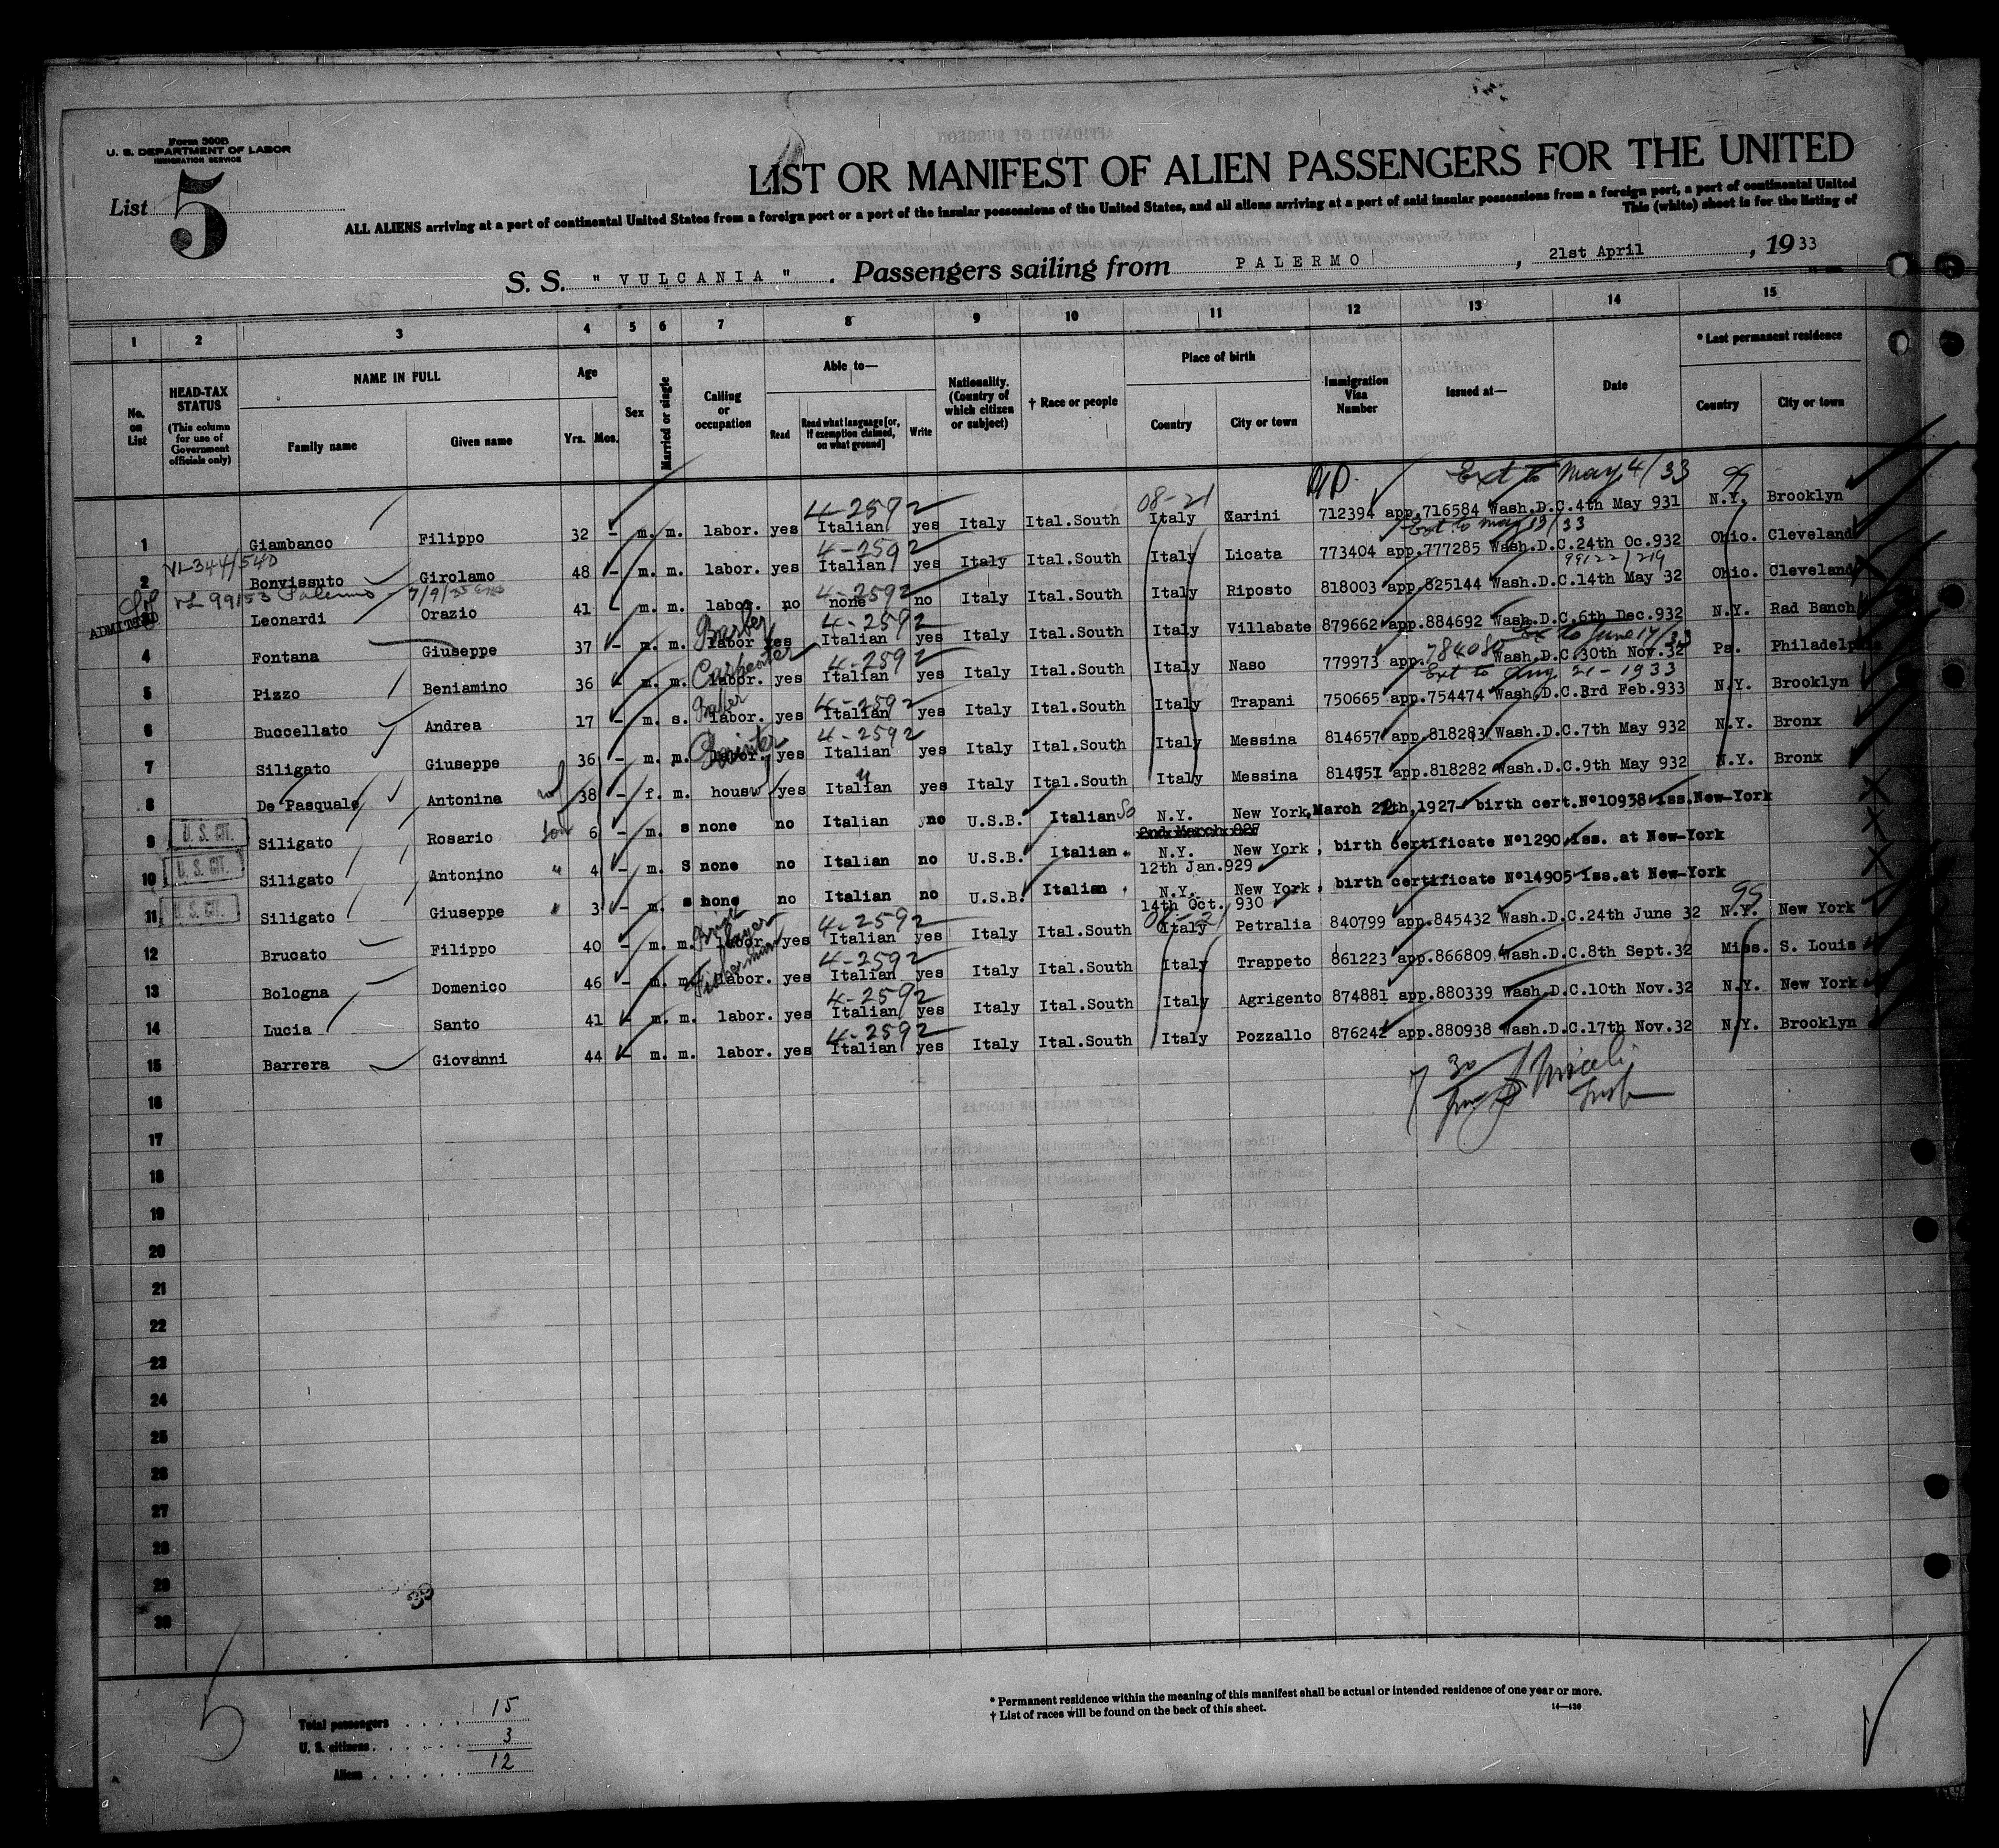 Form 500B
U. S. DEPARTMENT OF LABOR
IMMIGRATION SERVICE
List 5
LIST OR MANIFEST OF ALIEN PASSENGERS FOR THE UNITED
ALL ALIENS arriving at a port of continental United States from a foreign port or a port of the insular possessions of the United States, and all aliens arriving at a port of said insular possessions from a foreign port, a port of continental United
This (white) sheet is for the listing of
S. S. " VULCANIA ". Passengers sailing from PALERMO, 21st April, 1933
1 2 3 4 5 6 7 8 9 10 11 12 13 14 15
No. on List
HEAD-TAX STATUS (This column for use of Government officials only)
NAME IN FULL
Family name Given name
Age Yrs. Mos.
Sex
Married or single
Calling or occupation
Able to—
Read Read what language [or, if exemption claimed, on what ground] Write
Nationality. (Country of which citizen or subject)
† Race or people
Place of birth
Country City or town
Immigration Visa Number
Issued at—
Date
* Last permanent residence
Country City or town
Ext to May 4/33
08-21
4-2592
1 Giambanco Filippo 32 - m. m. labor. yes Italian yes Italy Ital.South Italy Xarini 712394 app.716584 Wash.D.C.4th May 931 N.Y. Brooklyn
VL344/540
4-2592 Ext to May 19/33
2 Bonvissuto Girolamo 48 - m. m. labor. yes Italian yes Italy Ital.South Italy Licata 773404 app.777285 Wash.D.C.24th Oc.932 Ohio. Cleveland
VL 99153 Palermo - 7/9/35
4-2592 99122/219
ADMITTED Leonardi Orazio 41 - m. m. labor. no none no Italy Ital.South Italy Riposto 818003 app.825144 Wash.D.C.14th May 32 Ohio. Cleveland
Barber 4-2592
4 Fontana Giuseppe 37 - m. m. labor yes Italian yes Italy Ital.South Italy Villabate 879662 app.884692 Wash.D.C.6th Dec.932 N.Y. Rad Banch
Carpenter 4-2592 784080 Ex to June 17/33
5 Pizzo Beniamino 36 - m. m. labor. yes Italian yes Italy Ital.South Italy Naso 779973 app. Wash.D.C.30th Nov.32 Pa. Philadelphia
4-2592 Ext to Aug 21-1933
6 Buccellato Andrea 17 - m. s. labor. yes Italian yes Italy Ital.South Italy Trapani 750665 app.754474 Wash.D.C.3rd Feb.933 N.Y. Brooklyn
4-2592
7 Siligato Giuseppe 36 - m. m. labor. yes Italian yes Italy Ital.South Italy Messina 814657 app.818283 Wash.D.C.7th May 932 N.Y. Bronx
8 De Pasquale Antonina wf 38 - f. m. housw yes Italian yes Italy Ital.South Italy Messina 814651 app.818282 Wash.D.C.9th May 932 N.Y. Bronx
9 U. S. CIT. Siligato Rosario son 6 - m. s none no Italian no U.S.B. Italian So N.Y. New York, March 22th,1927 birth cert.Nº10938 iss.New-York
2nd March 927
10 U. S. CIT. Siligato Antonino " 4 - m. s none no Italian no U.S.B. Italian " N.Y. New York, birth certificate Nº1290 Iss. at New-York
12th Jan.929
11 U. S. CIT. Siligato Giuseppe " 3 - m. s none no Italian no U.S.B. Italian " N.Y. New York, birth certificate Nº14905 iss.at New-York
14th Oct. 930
Brick layer 4-2592
12 Brucato Filippo 40 - m. m. labor. yes Italian yes Italy Ital.South Italy Petralia 840799 app.845432 Wash.D.C.24th June 32 N.Y. New York
Fisherman 4-2592
13 Bologna Domenico 46 - m. m. labor. yes Italian yes Italy Ital.South Italy Trappeto 861223 app.866809 Wash.D.C.8th Sept.32 Miss. S. Louis
4-2592
14 Lucia Santo 41 - m. m. labor. yes Italian yes Italy Ital.South Italy Agrigento 874881 app.880339 Wash.D.C.10th Nov.32 N.Y. New York
4-2592
15 Barrera Giovanni 44 - m. m. labor. yes Italian yes Italy Ital.South Italy Pozzallo 876242 app.880938 Wash.D.C.17th Nov.32 N.Y. Brooklyn
16
17
18
19
20
21
22
23
24
25
26
27
28
29
30
5
Total passengers 15
U. S. citizens 3
Aliens 12
* Permanent residence within the meaning of this manifest shall be actual or intended residence of one year or more.
† List of races will be found on the back of this sheet.
14—430